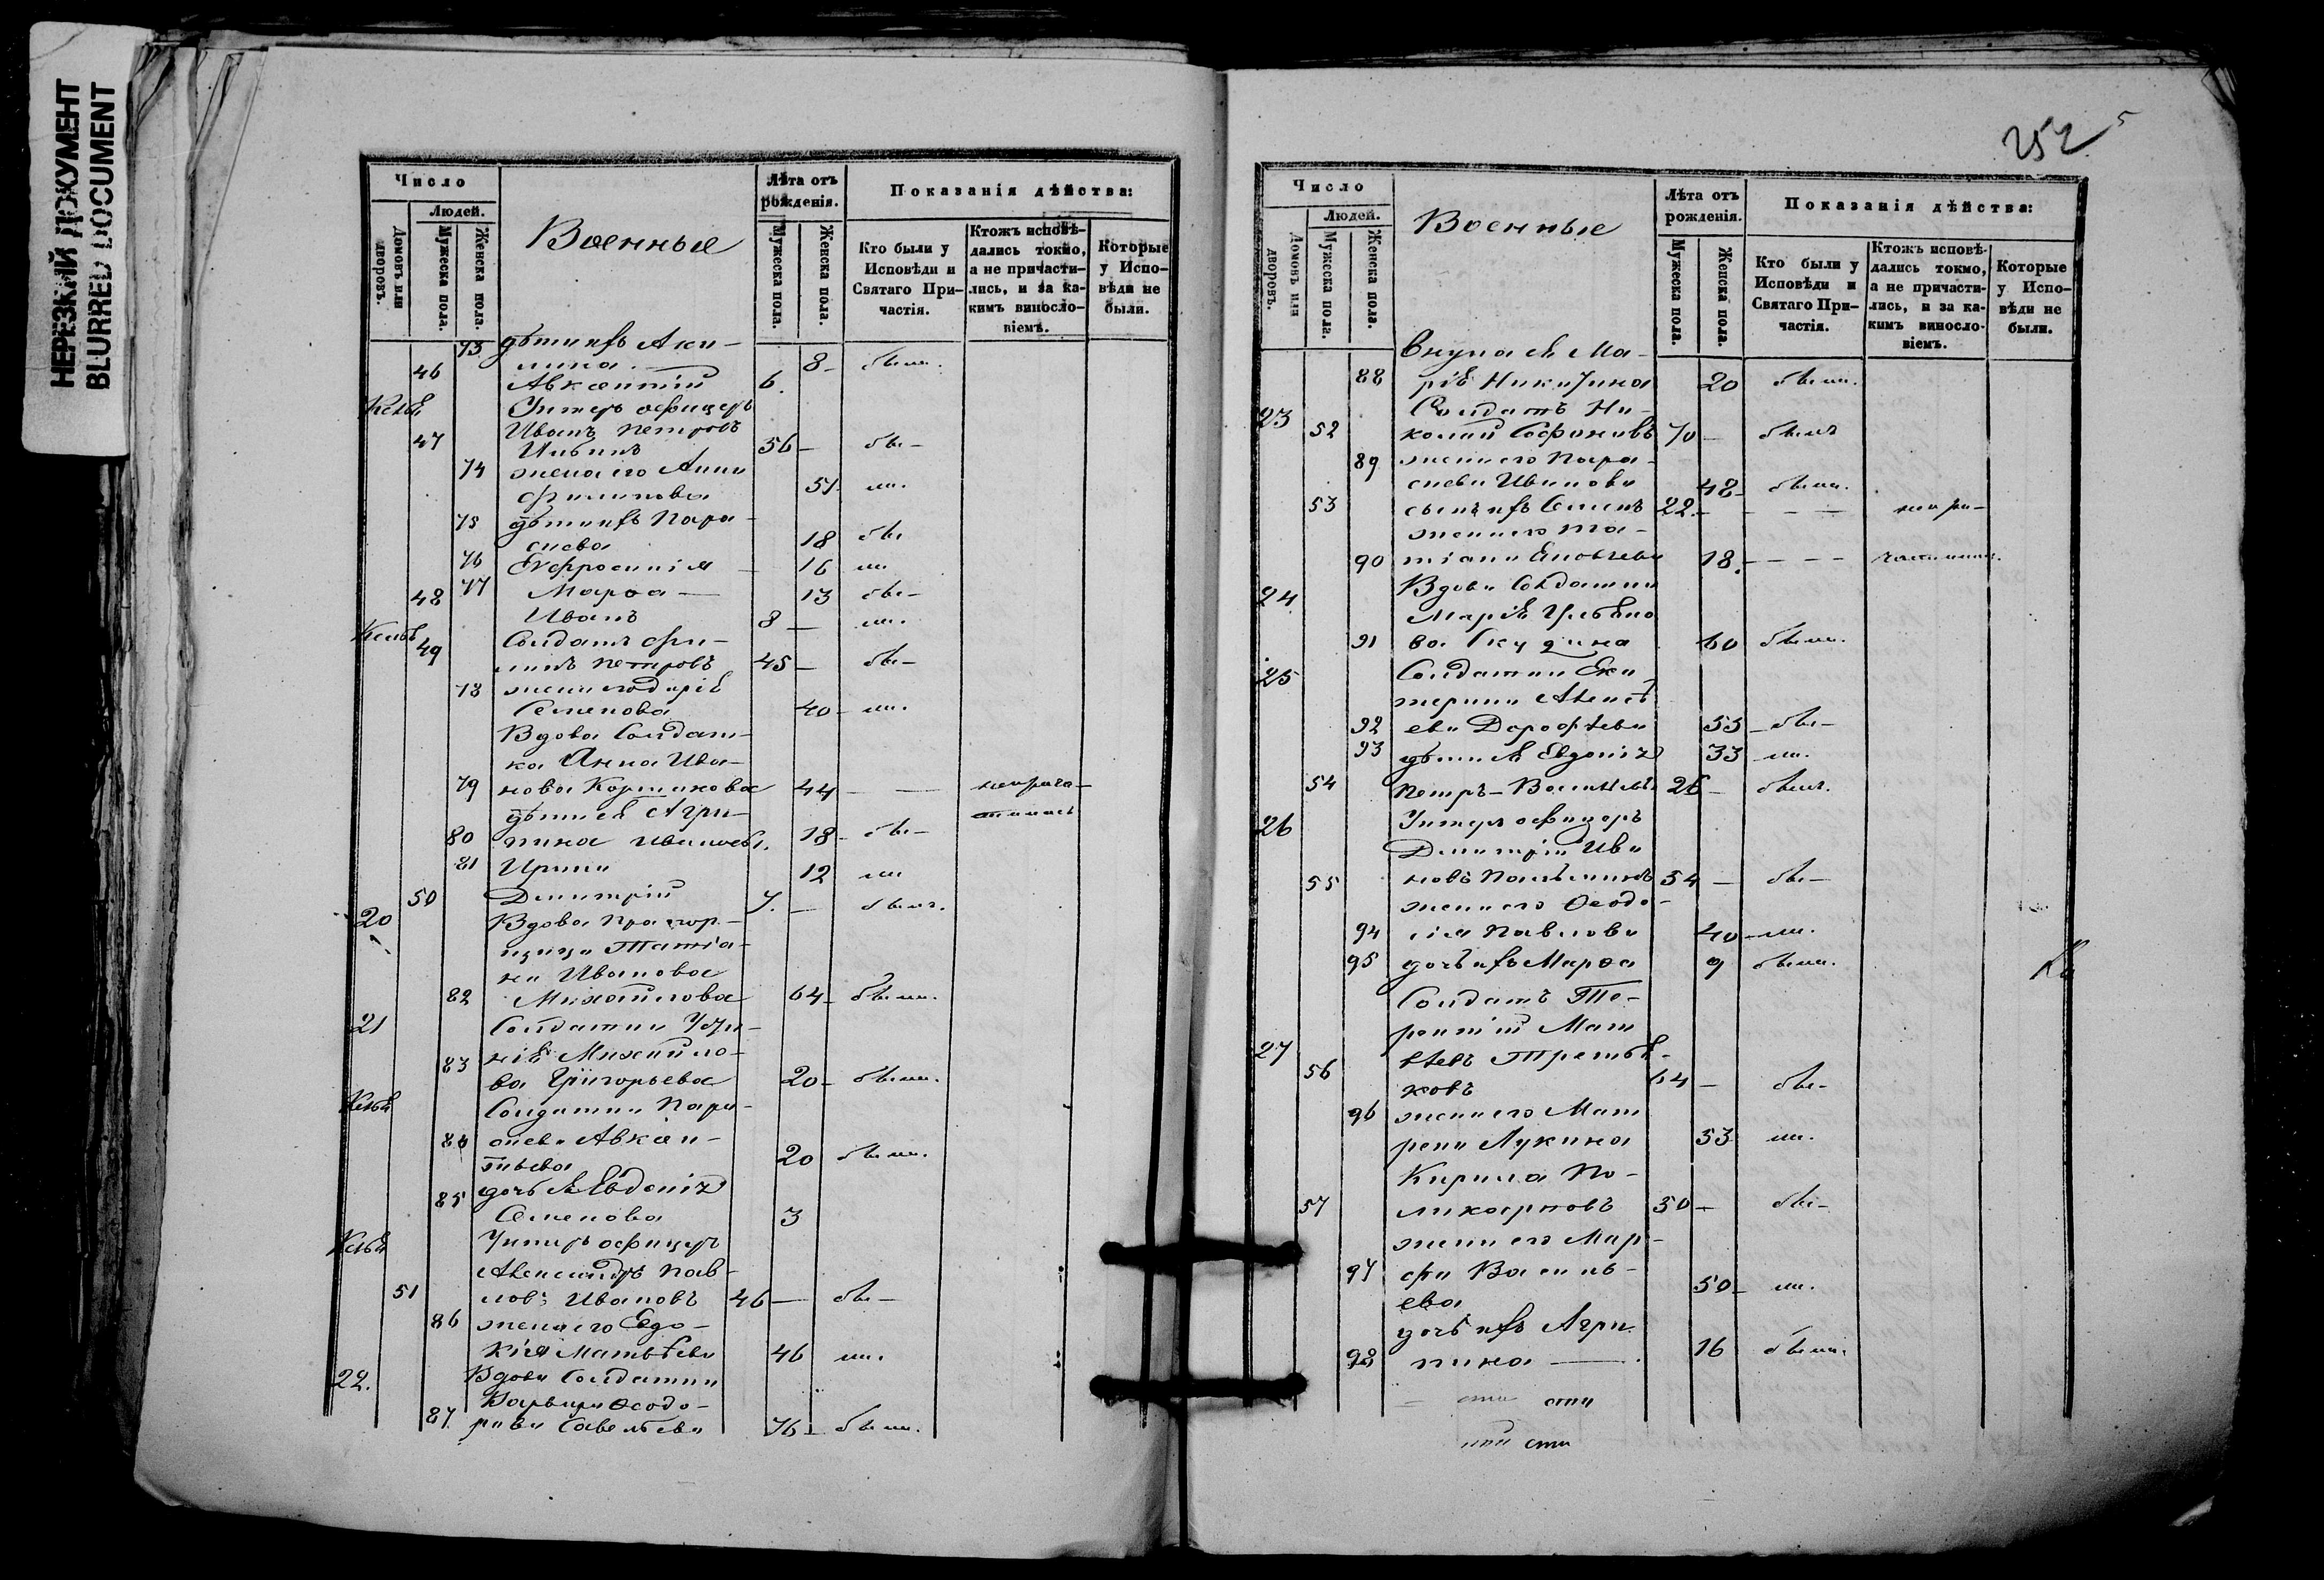 НЕРЕЗКИЙ ДОКУМЕНТ
BLURRED DOCUMENT
Число
Людей.
Домовъ или дворовъ.
Мужеска пола.
Женска пола.
Военные
Лѣта отъ рожденія.
Мужеска пола.
Женска пола.
Показанія дѣйства:
Кто были у Исповѣди и Святаго Причастія.
Ктожъ исповѣдались токмо, а не причастились, и за какимъ винословіемъ.
Которые у Исповѣди не были.
73 дѣти ихъ Аки-
лина 8 были.
46 Авксентій 6.
Унтеръ офицеръ
Иванъ Петровъ
47 Ильинъ 56 — бы-
74 жена его Анна
Филипова 51 ли.
75 дѣти ихъ Пара-
скева 18 бы
76 Евфросинія 16 ли
77 Марѳа — 13 бы-
48 Иванъ 8 — ли.
49 Солдатъ Фи-
липъ Петровъ 45 — бы-
78 жена его Дарія
Семенова 40 — ли.
Вдова Солдат-
ка Анна Ива-
79 нова Кортикова 44 — — неприча-
дѣти ея Агри- стилась
80 пина Иванова. 18 — бы-
81 Ирина 12 ли
50 Димитрій 7. — былъ.
20 Вдова Прапор-
щица Татіа-
на Иванова
82 Михайлова 64 — были.
21 Солдатка
83 Михайло-
ва Григорьева 20 — были.
Солдатка Пара-
84 скева Авксен-
тьева 20 были.
85 дочь ея Евдокія
Семенова 3
Унтеръ офицеръ
Александръ Пав-
51 ловъ Ивановъ 46 — бы-
86 жена его Евдо-
кія Матвѣева 46 ли.
22. Вдова Солдатка
Варвара Ѳеодо-
87 рова Савельева 76 — были.
252
Число
Людей.
Домовъ или дворовъ.
Мужеска пола.
Женска пола.
Военные
Лѣта отъ рожденія.
Мужеска пола.
Женска пола.
Показанія дѣйства:
Кто были у Исповѣди и Святаго Причастія.
Ктожъ исповѣдались токмо, а не причастились, и за какимъ винословіемъ.
Которые у Исповѣди не были.
внука ея Ма-
88 рія Никитина 20 были.
23 Солдатъ Ни-
52 колай Софоновъ 70 — былъ
89 жена его Пара-
скева Иванова 48 — были.
53 сынъ ихъ Семенъ 22. — — — непри-
жена его Та-
90 тіана Яковлева 18. — — — частились.
24 Вдова Солдатка
Марія Ульяно
91 ва Скудина 60 были.
25 Солдатка Ека-
терина Алексѣ
92 ева Дорофѣева 55 — бы-
93 дѣти ея Евдокія 33 ли.
54 Петръ — Васильевъ 26 — былъ.
26 Унтеръ офицеръ
Димитрій Ива
55 новъ 54 — бы-
жена его Ѳеодо-
94 сія Павлова 40 — ли.
95 дочь ихъ Марѳа 9 были.
Солдатъ Те-
рентій Мат
27 вѣевъ Третья-
56 ковъ 64 — бы-
96 жена его Мат
рена Лукина 53 ли.
Кирила По-
57 ликарповъ 50 — бы-
жена его Мар-
97 фа Василь-
ева 50 — ли.
дочь ихъ Агри
98 пина — 16 были.